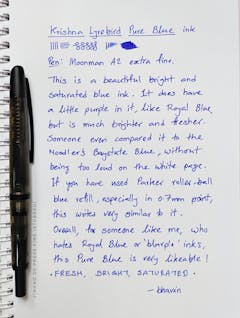 Krishna Lyrebird Pure Blue ink
Pen: Moonman A2 extra fine.
This is a beautiful bright and
saturated blue ink. It does have
a little purple in it, like Royal Blue,
but is much brighter and fresher.
Someone even compared it to the
Noodler's Baystate Blue, without
being too loud on the white page.
If you have used Parker roller-ball
blue refill, especially in 0.7mm point,
this writes very similar to it.
Overall, for someone like me, who
hates Royal Blue or 'blurple' inks,
this Pure Blue is very likeable!
• FRESH, BRIGHT, SATURATED •
- bhavin